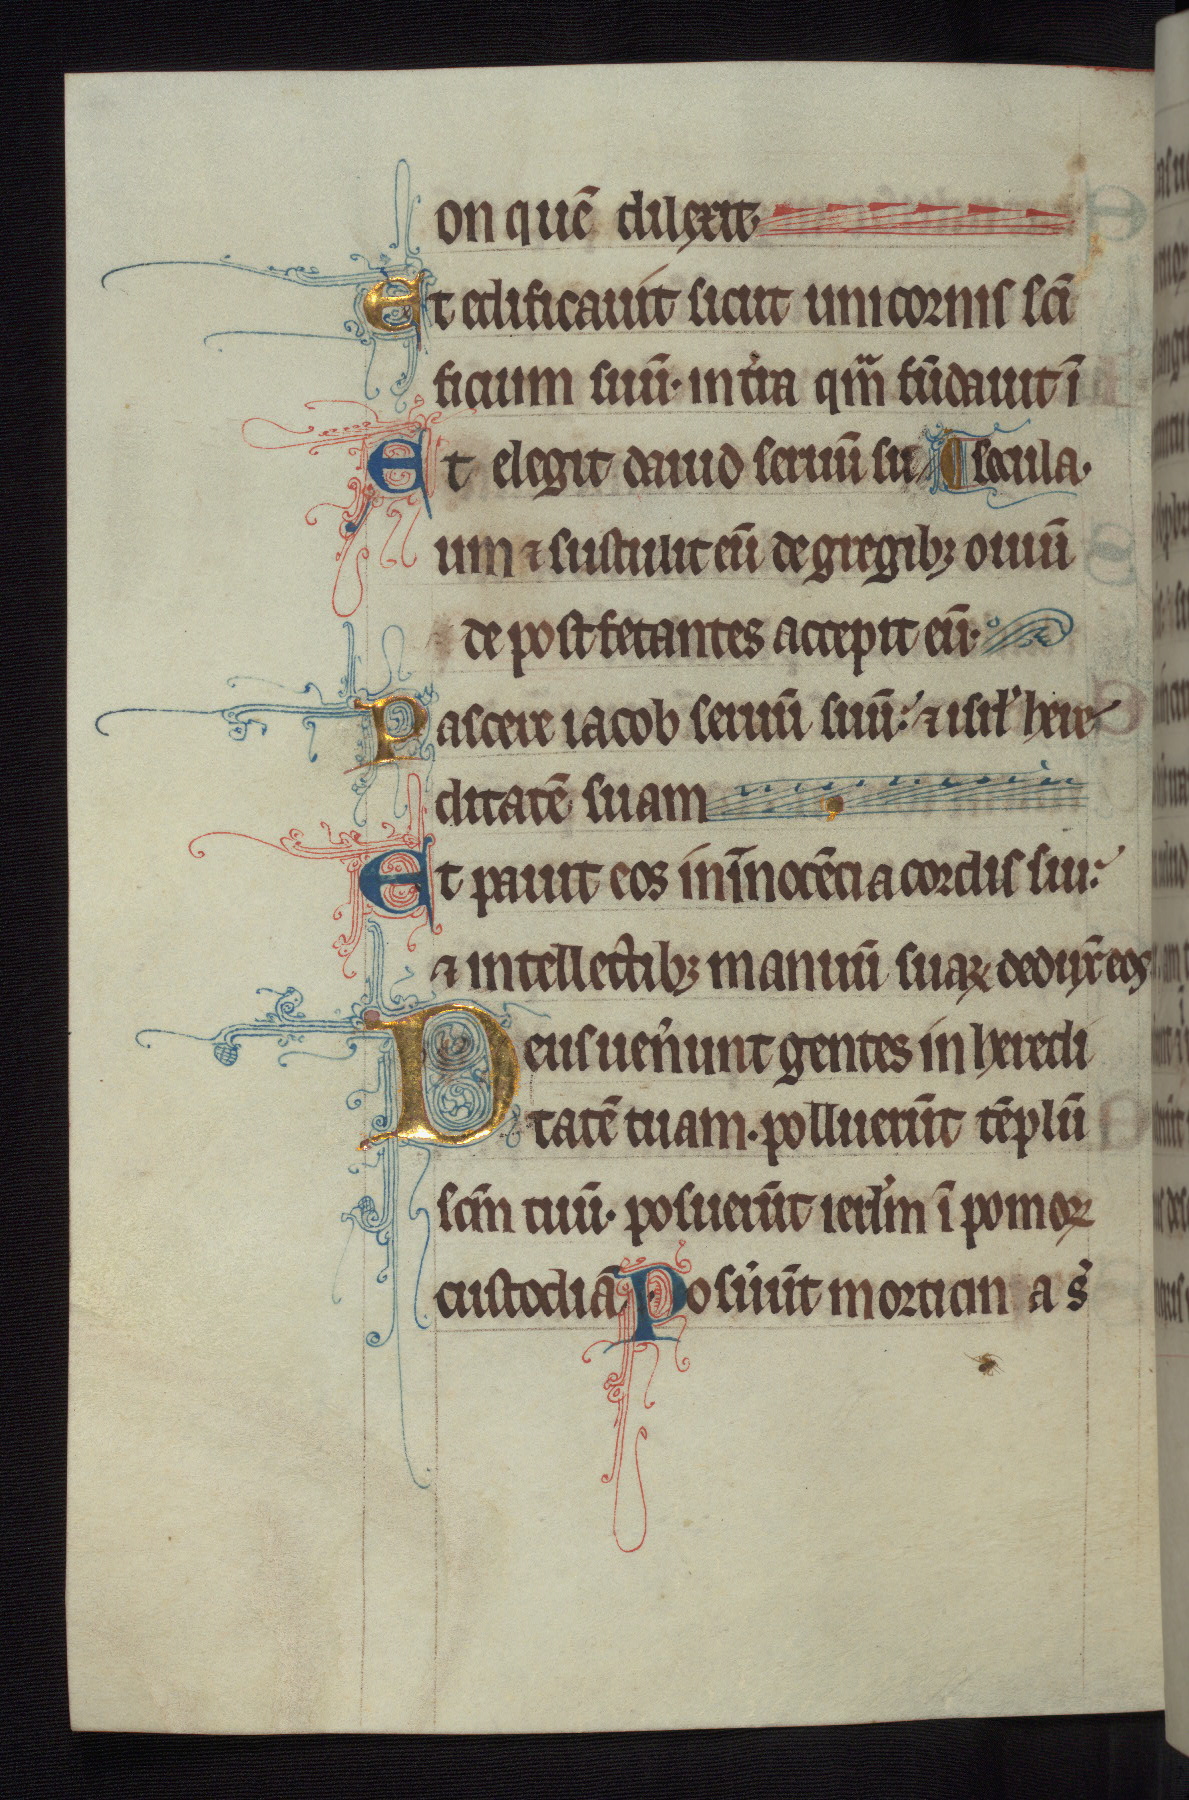 on quē dilexit.
Et edificauit sicut unicornis scī
ficium suū· in tr̄a qm̄ fūdauit ī
Et elegit dauid seruū su ¶ secula.
um ⁊ sustulit eū de gregibꝫ ouiū
de post fetantes accepit eū·
Pascere iacob seruū suū: ⁊ isrl̄ here
ditatē suam
Et pauit eos in īnocēcia cordis sui:
⁊ intellectibꝫ manuū suaꝝ deduxͭ eos
Deus uen̄unt gentes in heredi
tatē tuam· polluerūt tēplū
scm̄ tuū· posuerūt ierl̄m ī pomoꝝ
custodiā Posuūt morticin a s̄